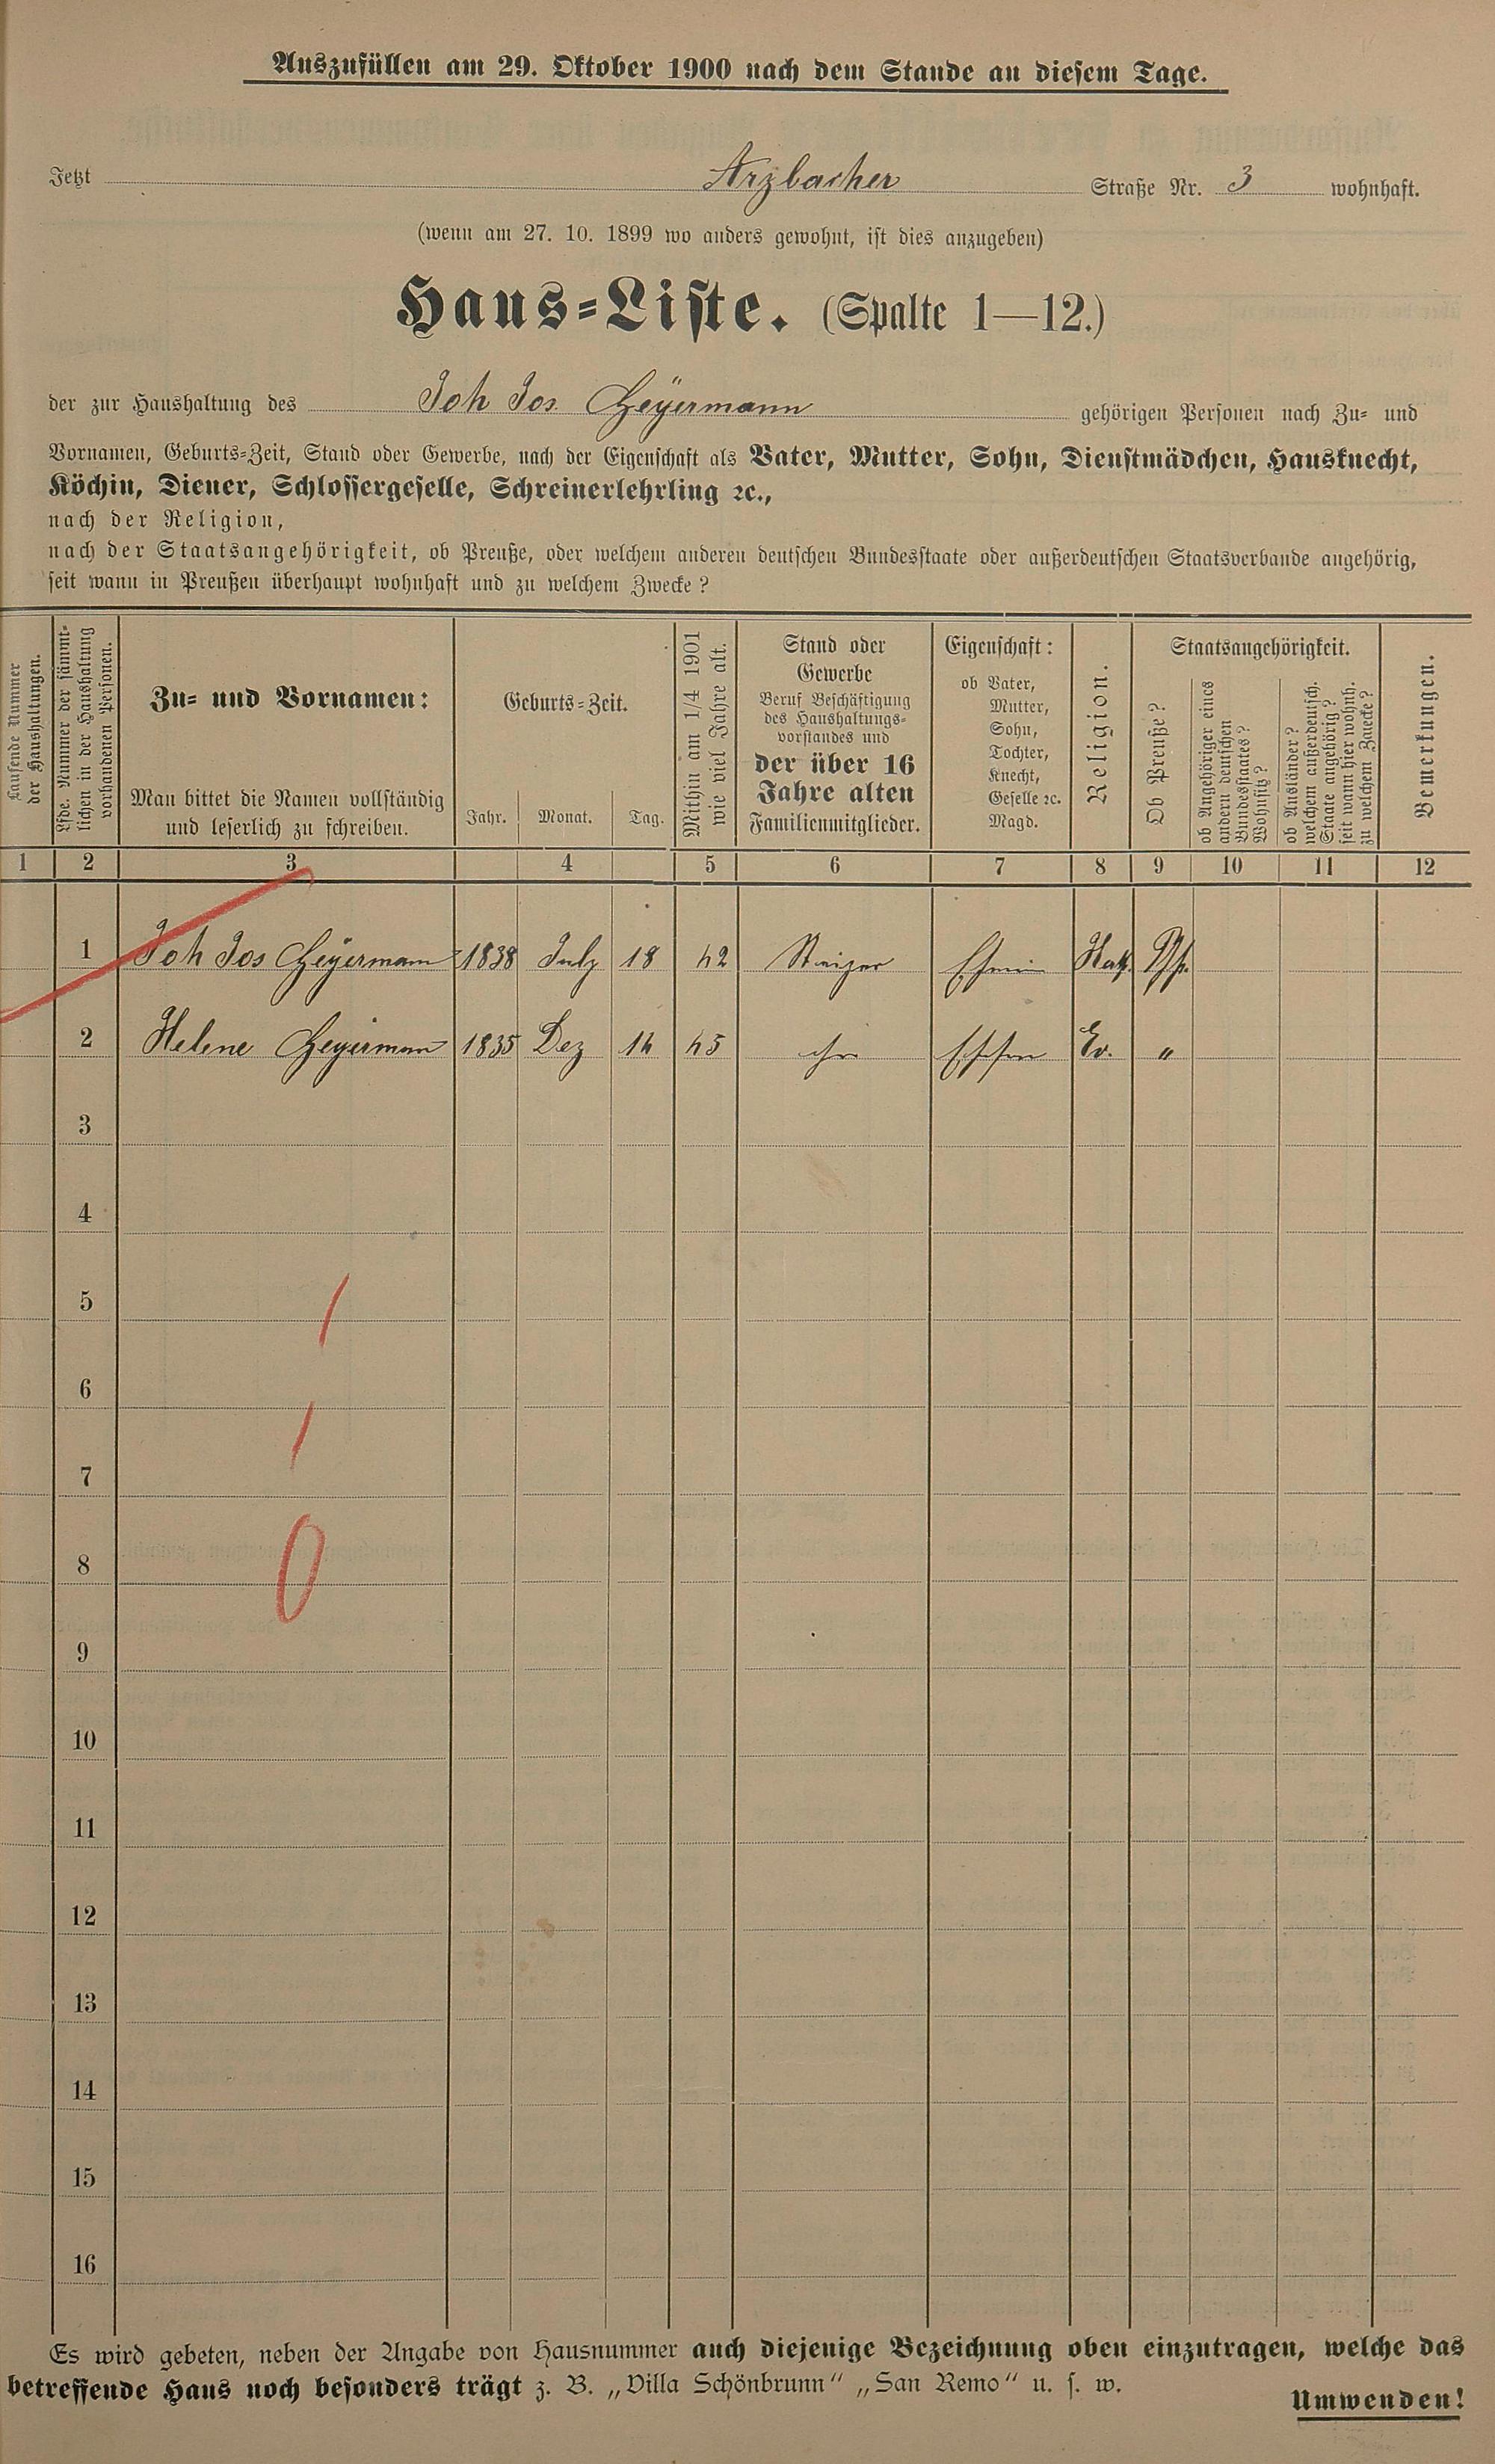 Auszufüllen am 29. Oktober 1900 nach dem Stande an diesem Tage.
Jetzt Arzbacher Straße Nr. 3 wohnhaft.
(wenn am 27. 10. 1899 wo anders gewohnt, ist dies anzugeben)
Haus-Liste. (Spalte 1—12.)
der zur Haushaltung des Joh Jos Geÿermann gehörigen Personen nach Zu- und
Vornamen, Geburts-Zeit, Stand oder Gewerbe, nach der Eigenschaft als Vater, Mutter, Sohn, Dienstmädchen, Hausknecht,
Köchin, Diener, Schlossergeselle, Schreinerlehrling ꝛc.,
nach der Religion,
nach der Staatsangehörigkeit, ob Preuße, oder welchem anderen deutschen Bundesstaate oder außerdeutschen Staatsverbande angehörig,
seit wann in Preußen überhaupt wohnhaft und zu welchem Zwecke?
Laufende Nummer
der Haushaltungen.
Lfde. Nummer der sämmt-
lichen in der Haushaltung
vorhandenen Personen.
Zu- und Vornamen:
Man bittet die Namen vollständig
und leserlich zu schreiben.
Geburts-Zeit.
Jahr. Monat. Tag.
Mithin am 1/4 1901
wie viel Jahre alt.
Stand oder
Gewerbe
Beruf Beschäftigung
des Haushaltungs-
vorstandes und
der über 16
Jahre alten
Familienmitglieder.
Eigenschaft:
ob Vater,
Mutter,
Sohn,
Tochter,
Knecht,
Geselle ꝛc.
Magd.
Religion.
Staatsangehörigkeit.
Ob Preuße?
ob Angehöriger eines
andern deutschen
Bundesstaates?
Wohnsitz?
ob Ausländer?
welchem außerdeutsch.
Staate angehörig?
seit wann hier wohnh.
zu welchem Zwecke?
Bemerkungen.
1 2 3 4 5 6 7 8 9 10 11 12
1 Joh Jos Geÿermann 1838 July 18 62 Steiger Kath.
2 Helene Geyermann 1835 Dez 14 65 Ev. "
3
4
5
6
7
8
9
10
11
12
13
14
15
16
Es wird gebeten, neben der Angabe von Hausnummer auch diejenige Bezeichnung oben einzutragen, welche das
betreffende Haus noch besonders trägt z. B. „Villa Schönbrunn“ „San Remo“ u. s. w.
Umwenden!